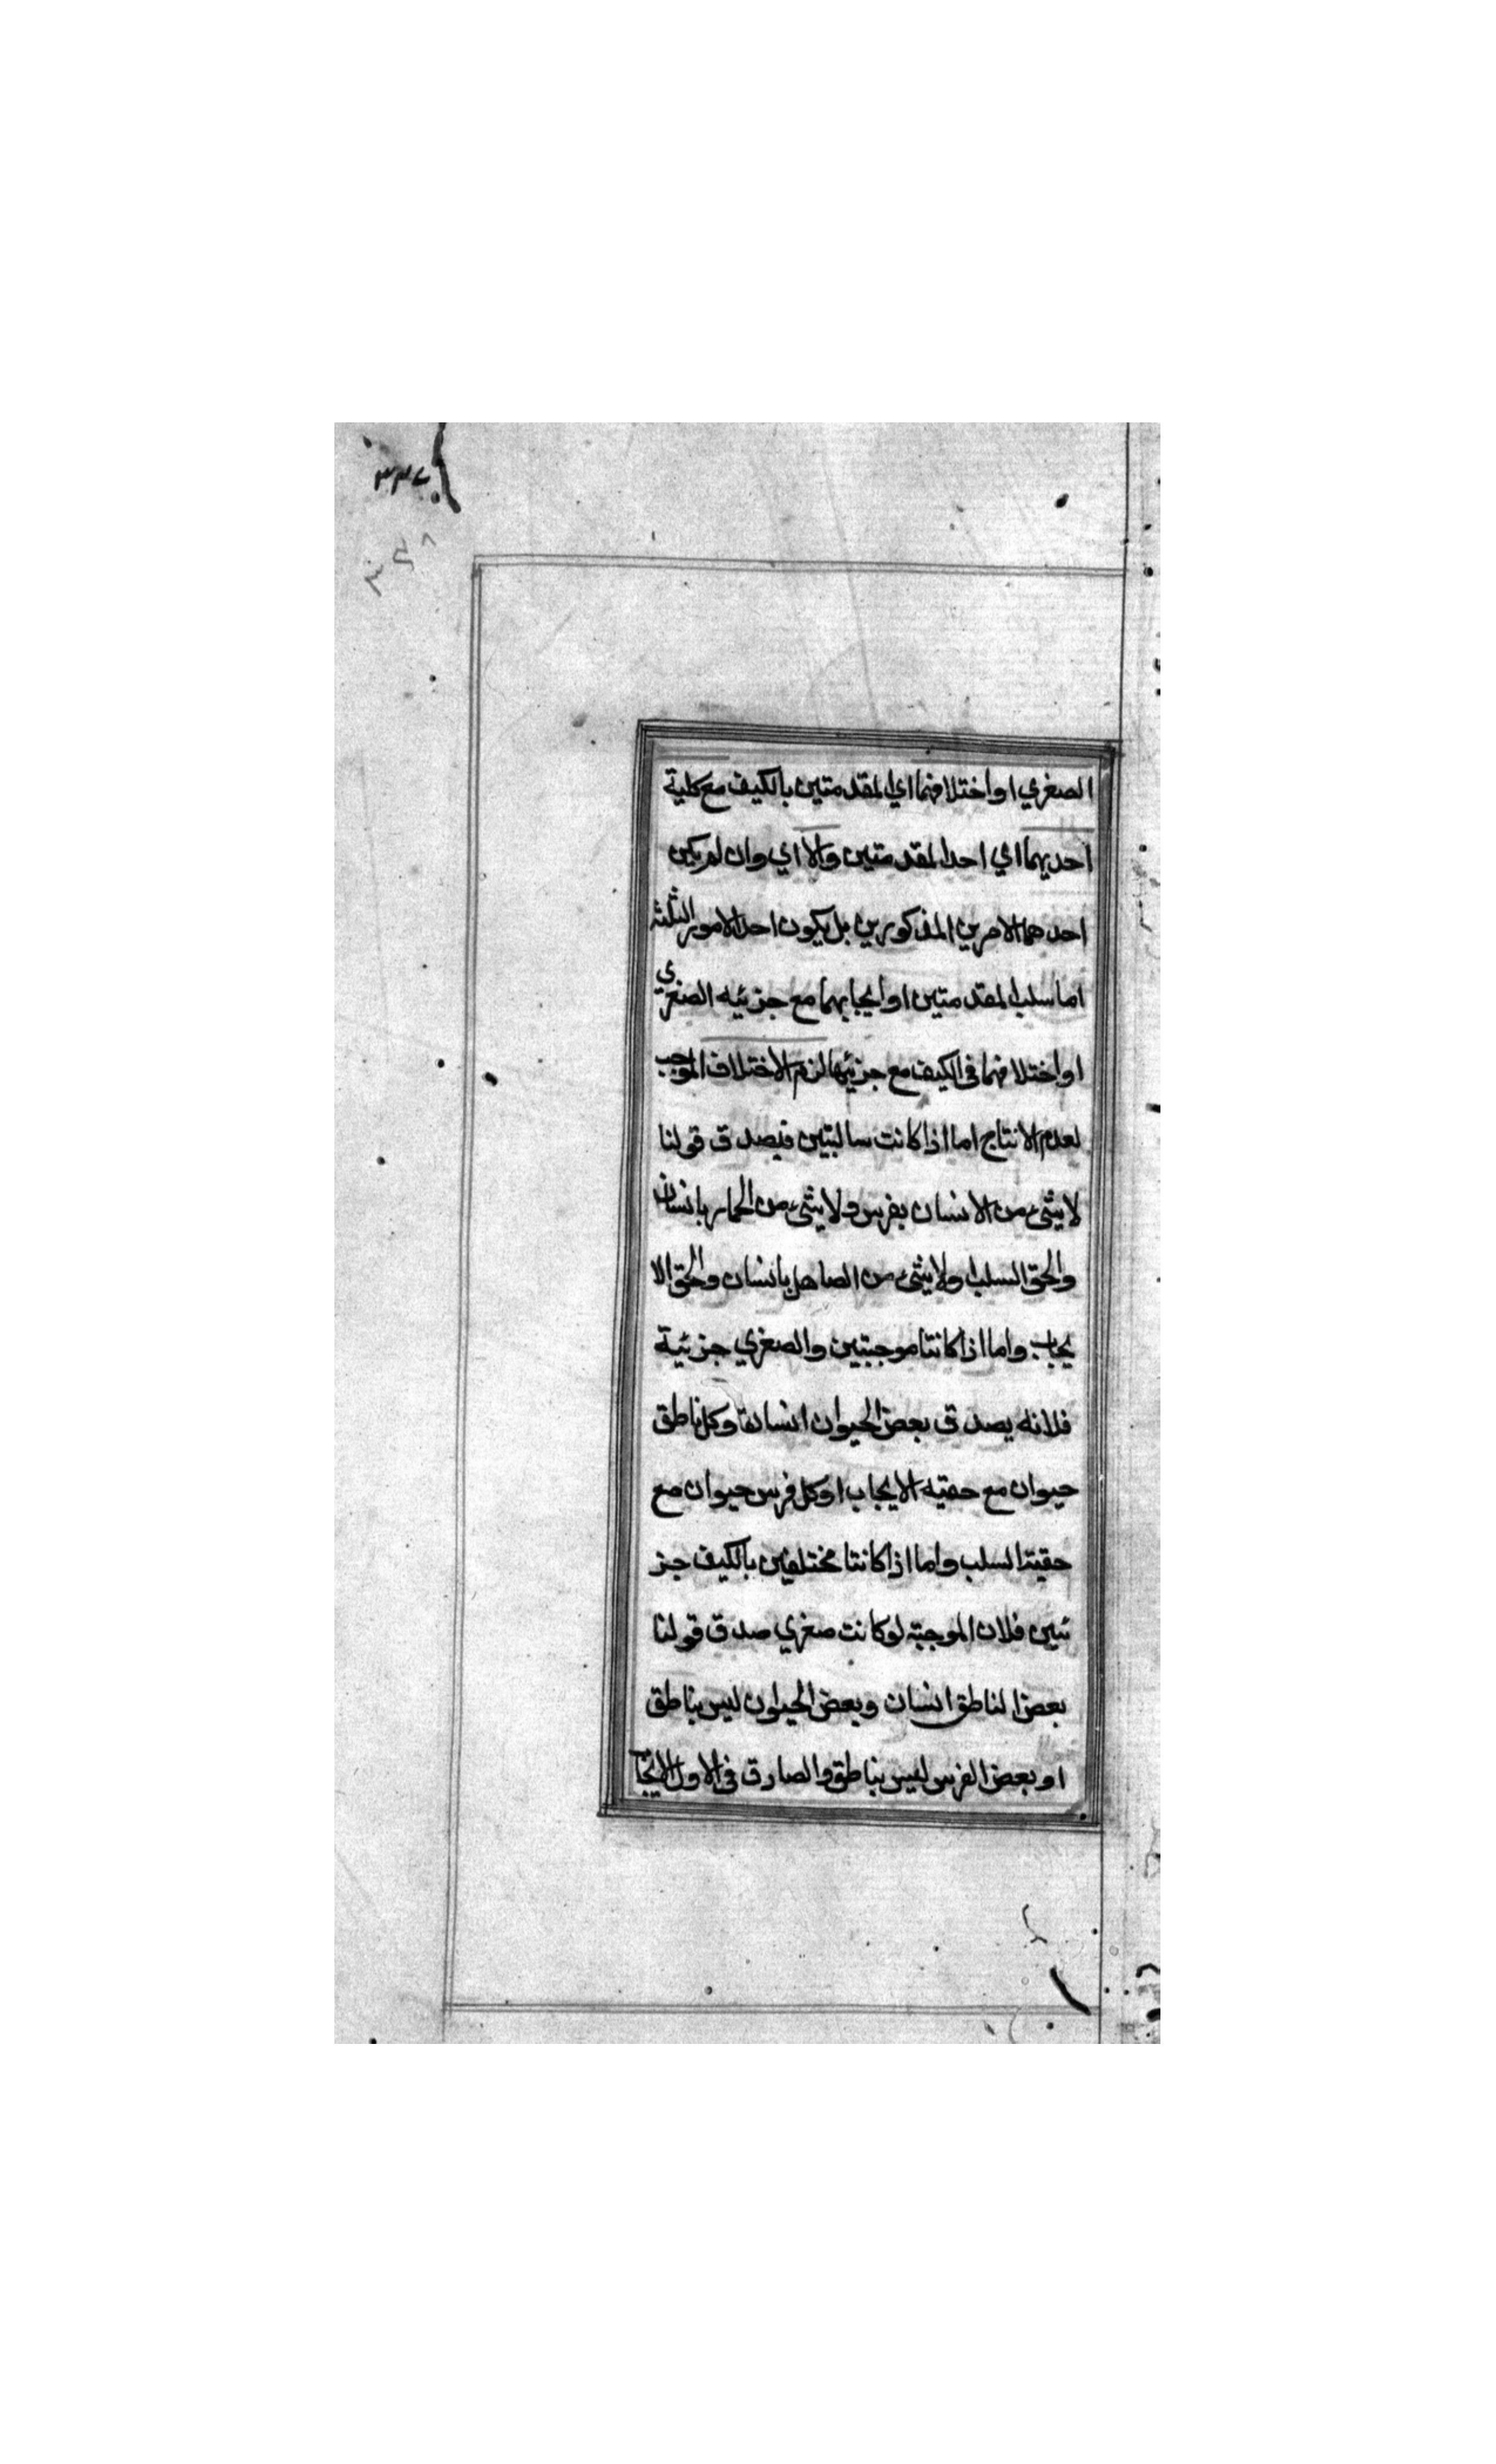 ٣٣٧
٣٥٨
الصغري او اختلافهما اي المقدمتين بالكيف مع كلية
احديهما اي احد المقدمتين والا اي وان لم يكن
احدهما الامرين المذكورين بل يكون احد الامور الثلثة
اما سلب المقدمتين او ايجابهما مع جزئيه الصغري
او اختلافهما في الكيف مع جزئيها لزم الاختلاف الموجب
لعدم الانتاج اما اذا كانت سالبتين فيصدق قولنا
لا شيء من الانسان بفرس ولا شيء من الحمار بانسان
والحق السلب او لا شيء من الصاهل بانسان والحق الا
يجاب واما اذا كانتا موجبتين والصغري جزئية
فلانه يصدق بعض الحيوان انسان وكل ناطق
حيوان مع حقيه الايجاب او كل فرس حيوان مع
حقيته السلب واما اذا كانتا مختلفين بالكيف جز
ئيين فلان الموجبة لو كانت صغري صدق قولنا
بعض الناطق انسان وبعض الحيوان ليس بناطق
او بعض الفرس ليس بناطق والصادق في الاول الايجاب